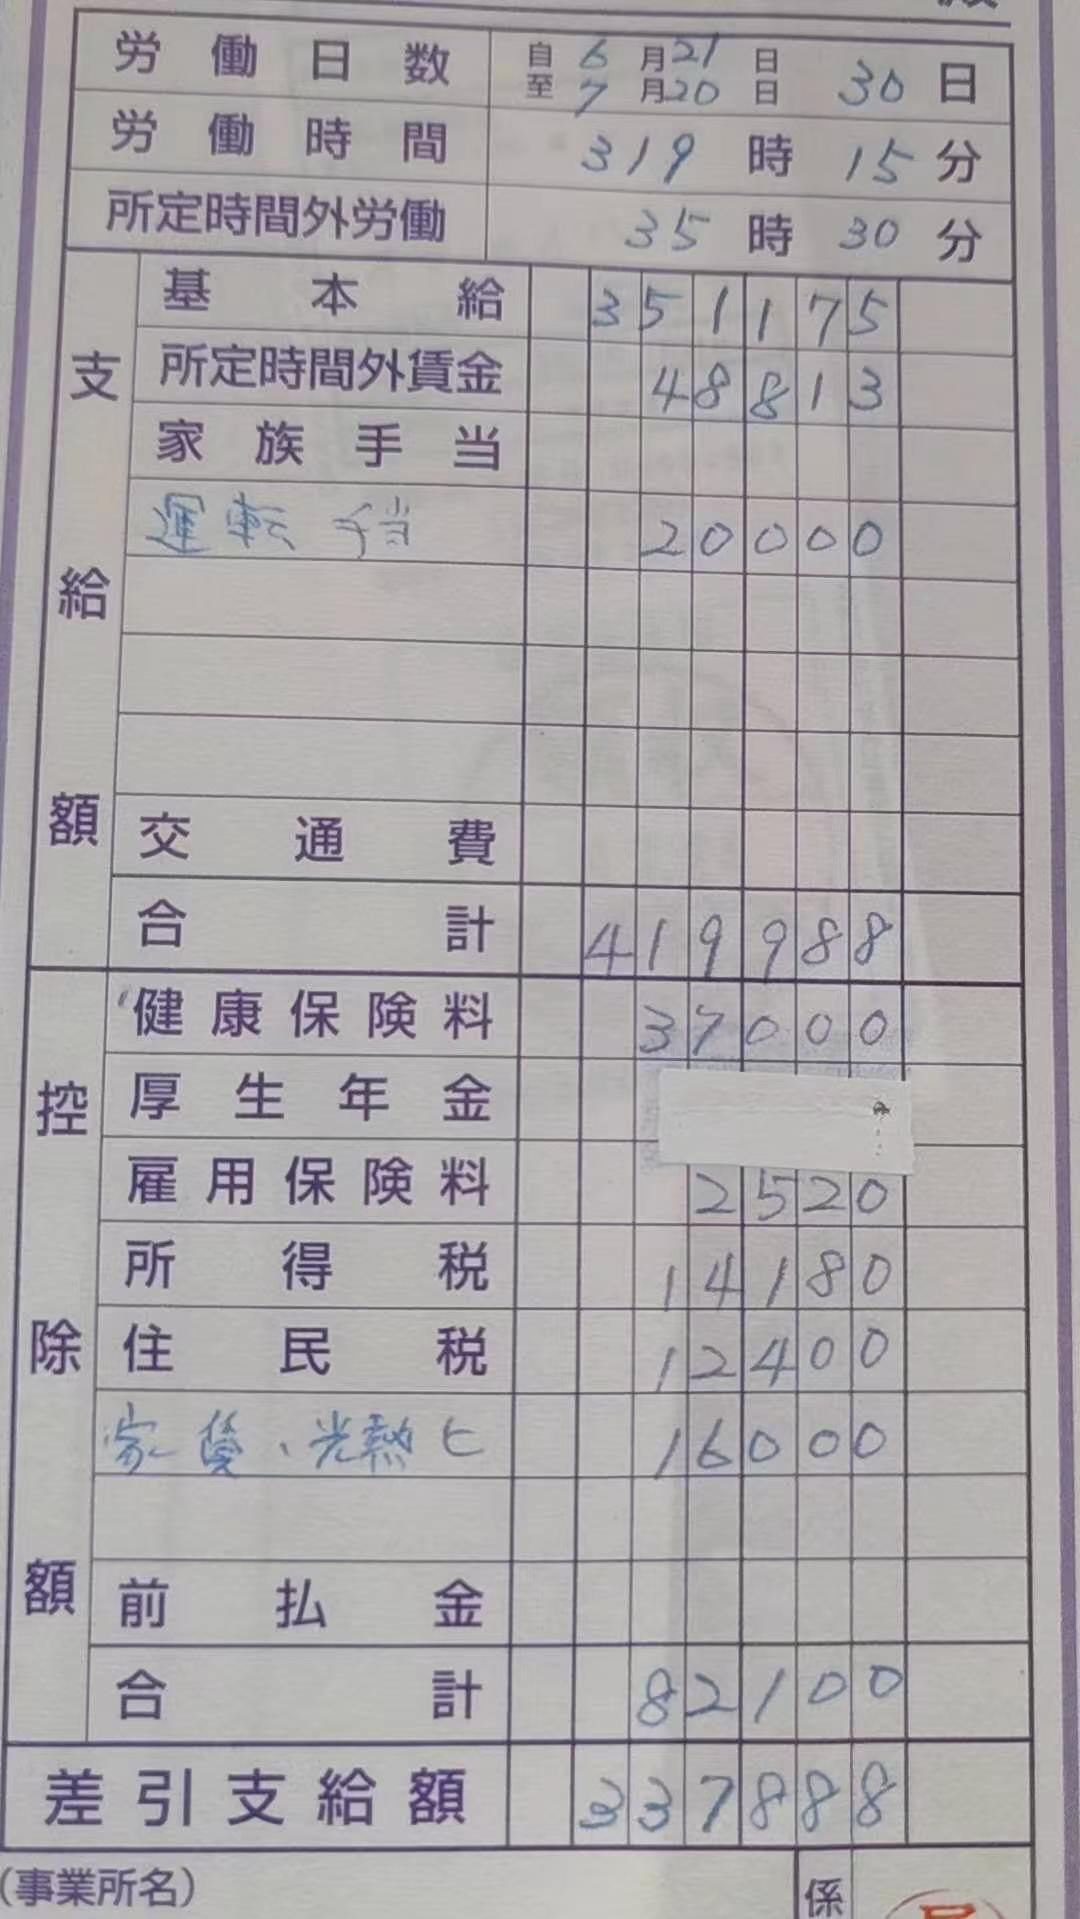 労働日数 自 6月21日 至 7月20日 30日
労働時間 319時15分
所定時間外労働 35時30分
支給額
基本給 351175
所定時間外賃金 48813
家族手当
運転手当 20000
交通費
合計 419988
控除額
健康保険料 37000
厚生年金
雇用保険料 2520
所得税 14180
住民税 12400
家賃、光熱ヒ 16000
前払金
合計 82100
差引支給額 337888
(事業所名) 係